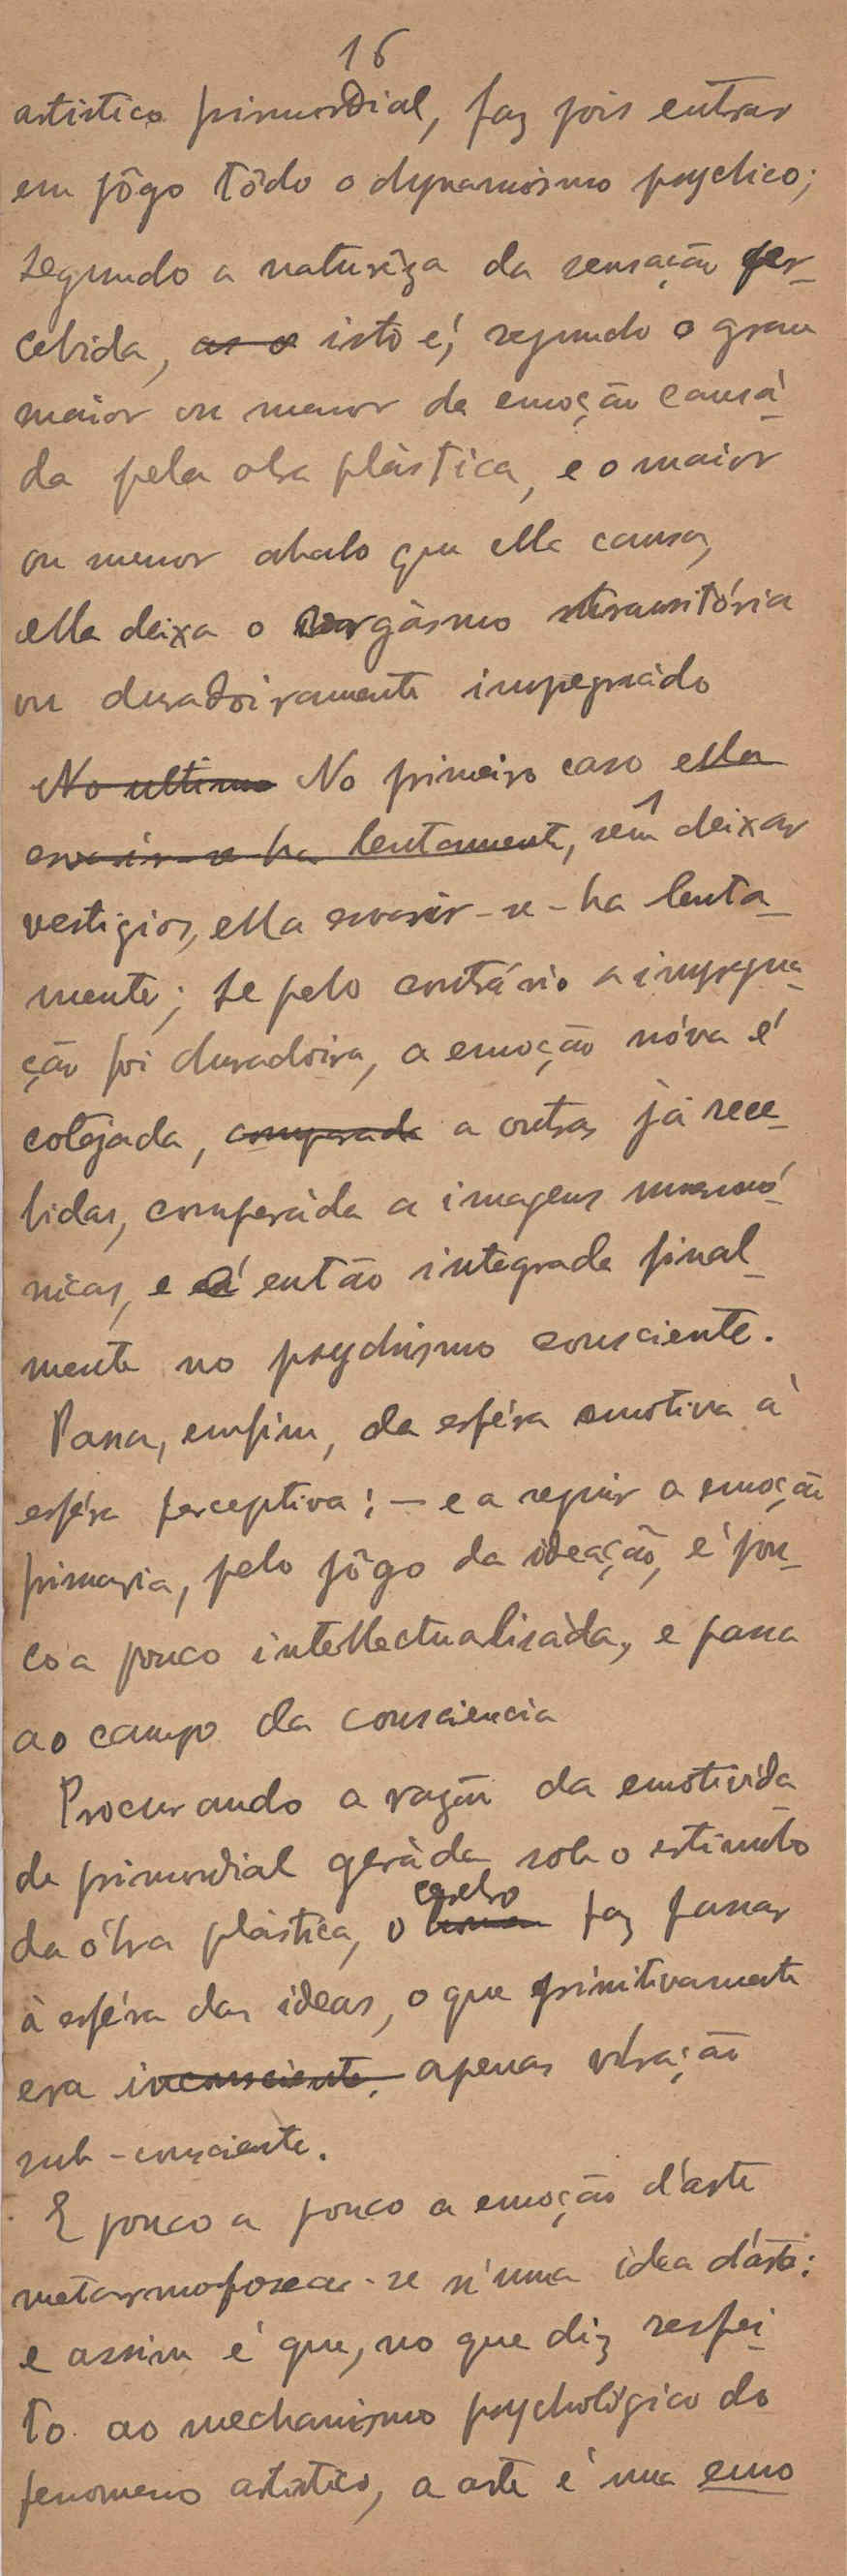 16
artistico primordial, faz pois entrar
em jôgo tôdo o dynamismo psychico;
segundo a naturêza da sensação per-
cebida, as o isto é, segundo o grau
maior ou menor da emoção causá-
da pela obra plàstica, e o maior
ou menor abalo que ella causa,
ella deixa o orgàsmo transitória
ou duradoiramente impregnàdo
No ultimo No primeiro caso ella
esvair-se ha lentamente, sem deixar
vestigios, ella esvair-se-ha lenta-
mente; se pelo contrário a impregna-
ção foi duradoira, a emoção nóva é
cotejada, comparada a outras jà rece-
bidas, comparàda a imagens mnemó-
nicas, e é então integrada final-
mente no psychismo consciente.
Passa, emfim, da esféra emotiva à
esféra perceptiva; — e a seguir a emoção
primaria, pelo jôgo da ideação, é pou-
co a pouco intellectualisàda, e passa
ao campo da consciencia
Procurando a razão da emotivida-
de primordial geràda sob o estimulo
da óbra plàstica, o homem cerebro faz passar
à esféra das ideas, o que primitivamente
era inconsciente, apenas vibração
sub-consciente.
E pouco a pouco a emoção d'arte
metarmofosea-se n'uma idea d'arte:
e assim é que, no que diz respei-
to ao mechanismo psychológico do
fenomeno artistico, a arte é uma emo